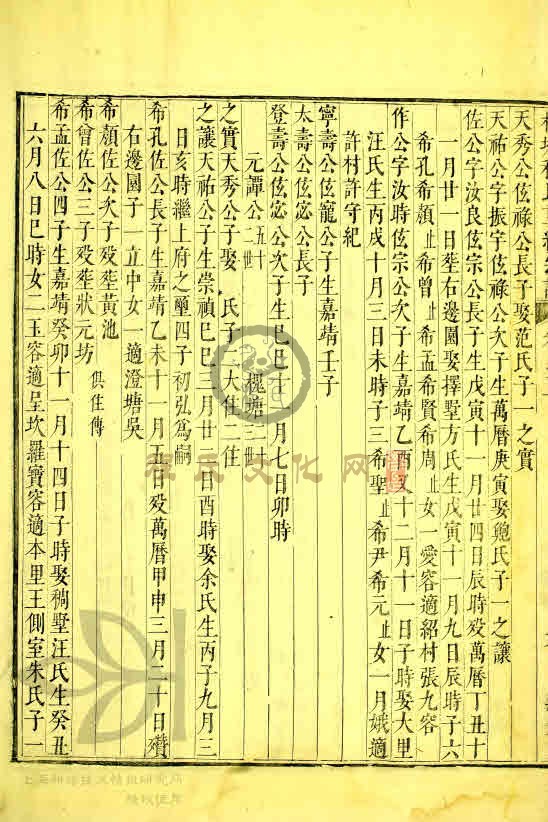 天秀公伭祿公長子娶范氏子一之實
天祐公字振宇伭祿公次子生萬曆庚寅娶鮑氏子一之讓
佐公字汝良伭宗公長子生戊寅十一月廿四日辰時殁萬曆丁丑十
一月廿一日塟右邊園娶擇墅方氏生戊寅十一月九日辰時子六
希孔希顏止希曾止希孟希賢希周止女一愛容適紹村張九容
作公字汝時伭宗公次子生嘉靖乙酉又十二月十一日子時娶大里
汪氏生丙戌十月三日未時子三希聖止希尹希元止女一月娥適
許村許守紀
寧壽公伭寵公子生嘉靖壬子
太壽公伭宓公長子
登壽公伭宓公次子生己巳十一月七日卯時
元譚公五十二世 槐塘二十世
之實天秀公子娶 氏子二大住二住
之讓天祐公子生崇禎己巳三月廿 日酉時娶余氏生丙子九月三
日亥時繼上府之璽四子初弘爲嗣
希孔佐公長子生嘉靖乙未十一月五日殁萬曆甲申三月二十日欑
右邊園子 立中女一適澄塘吳
希顏佐公次子殁塟黃池
俱住傳
希曾佐公三子殁塟狀元坊
希孟佐公四子生嘉靖癸卯十一月十四日子時娶稠墅汪氏生癸丑
六月八日巳時女二玉容適呈坎羅寶容適本里王側室朱氏子一